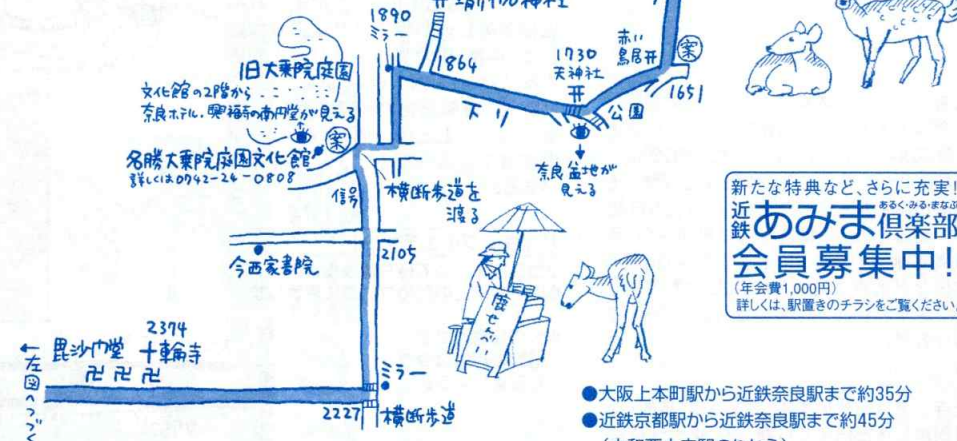 1890
ミラー
1864
下り
1730
天神社
赤い
鳥居
案
1651
公園
奈良盆地が
見える
旧大乗院庭園
文化館の2階から
奈良ホテル・興福寺の南円堂が見える
案
名勝大乗院庭園文化館
詳しくは0742-24-0808
信号
横断歩道を
渡る
2105
今西家書院
鹿せんべい
2374
毘沙門堂 十輪寺
卍 卍 卍
←左図へつづく
ミラー
2227
横断歩道
新たな特典など、さらに充実!
あるく・みる・まなぶ
近鉄あみま倶楽部
会員募集中!
(年会費1,000円)
詳しくは、駅置きのチラシをご覧ください。
●大阪上本町駅から近鉄奈良駅まで約35分
●近鉄京都駅から近鉄奈良駅まで約45分